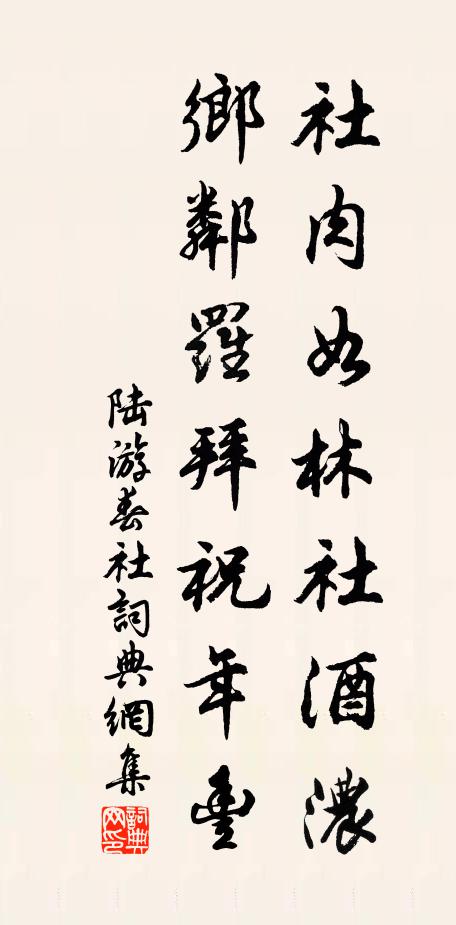 社肉如林社酒濃
鄉鄰羅拜祝年豐
陸游春社詞典網集
詞典網印